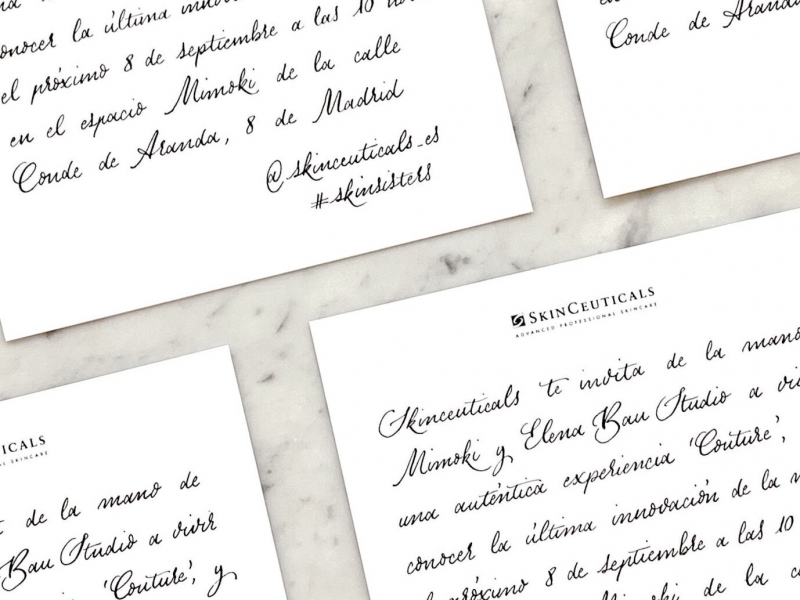 na
conocer la última
el próximo 8 de septiembre a las 10
en el espacio Mimoki de la calle
Conde de Aranda, 8 de Madrid
@skinceuticals_es
#skinsisters
Conde de Aranda
SKINCEUTICALS
ADVANCED PROFESSIONAL SKINCARE
Skinceuticals te invita de la mano
Mimoki y Elena Bau Studio a
una auténtica experiencia 'Couture',
conocer la última innovación de la
próximo 8 de septiembre a las 10
de la
CEUTICALS
SKINCARE
t de la mano de
Bau Studio a vivir
'Couture', y